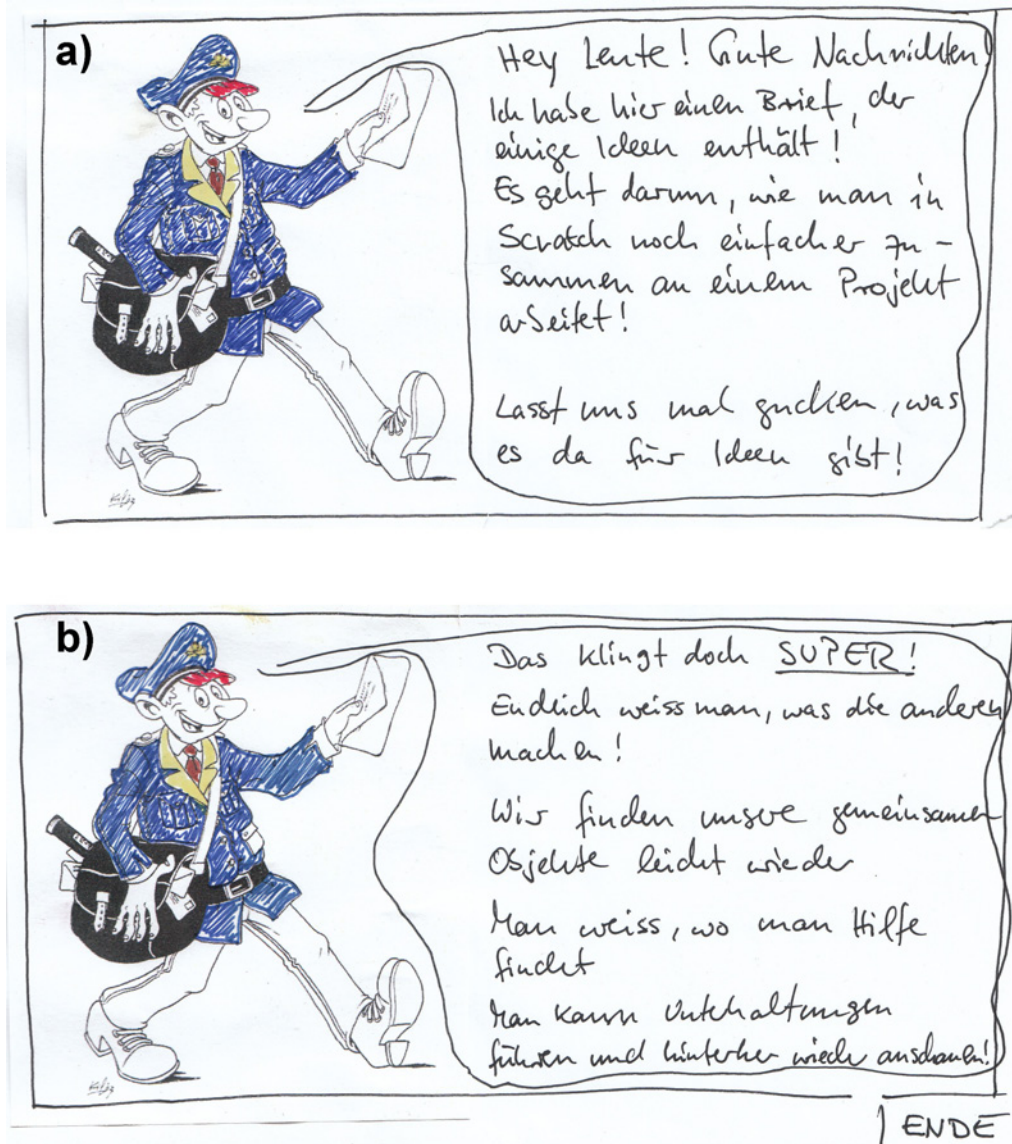 a)
Hey Leute! Gute Nachrichten!
Ich habe hier einen Brief, der
einige Ideen enthält!
Es geht darum, wie man in
Scratch noch einfacher zu-
sammen an einem Projekt
arbeitet!
Lasst uns mal gucken, was
es da für Ideen gibt!
b)
Das klingt doch SUPER!
Endlich weiss man, was die anderen
machen!
Wir finden unsere gemeinsamen
Objekte leicht wieder
Man weiss, wo man Hilfe
findet
Man kann Unterhaltungen
führen und hinterher wieder anschauen!
ENDE